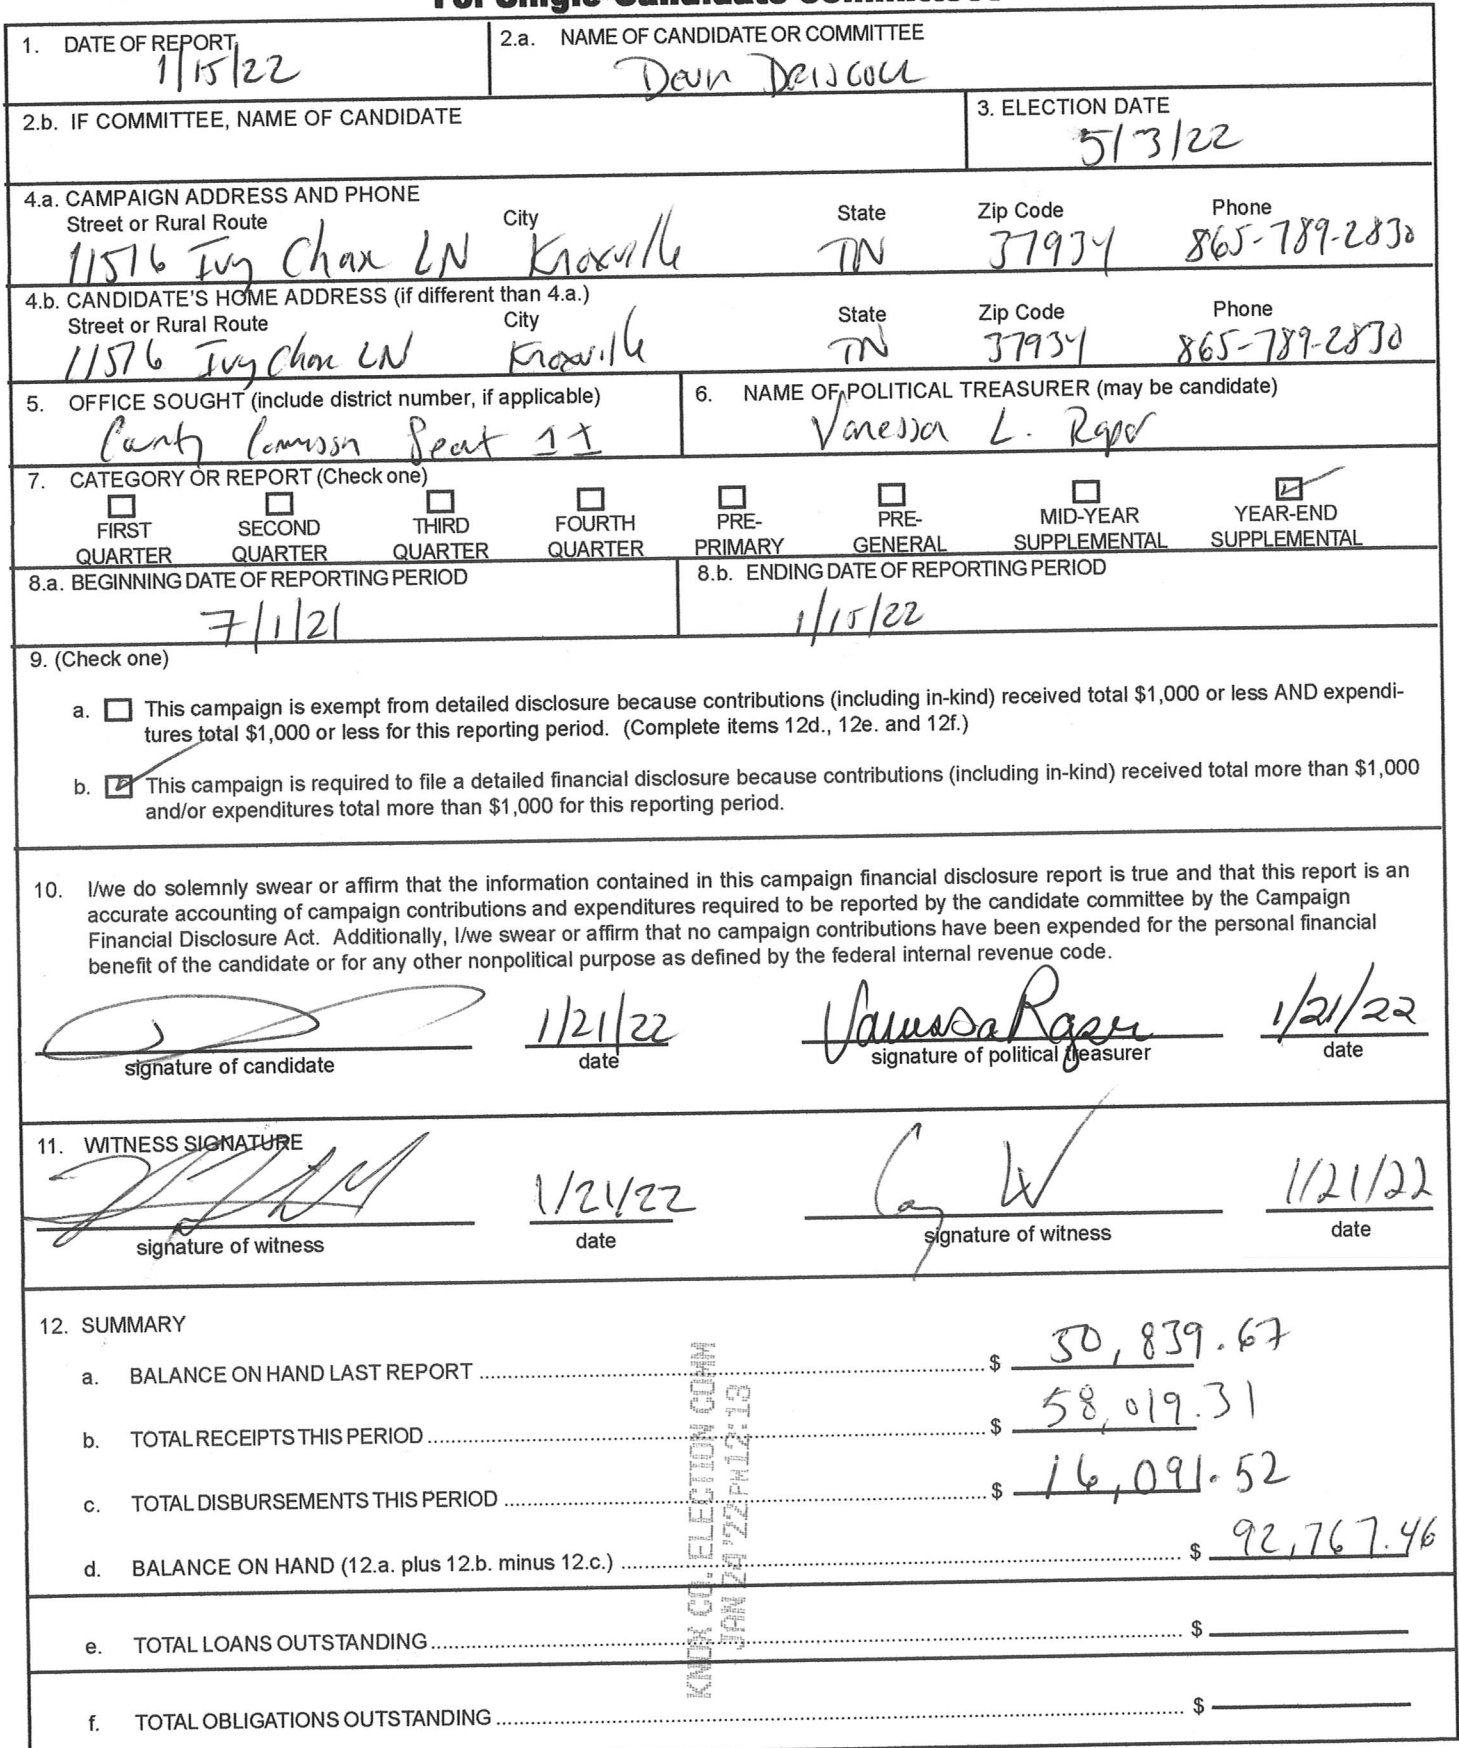 For Single-Candidate Committees
1. DATE OF REPORT
1/15/22
2.a. NAME OF CANDIDATE OR COMMITTEE
Devin Driscoll
2.b. IF COMMITTEE, NAME OF CANDIDATE
3. ELECTION DATE
5/3/22
4.a. CAMPAIGN ADDRESS AND PHONE
Street or Rural Route City State Zip Code Phone
11516 Ivy Chase LN Knoxville TN 37934 865-789-2830
4.b. CANDIDATE'S HOME ADDRESS (if different than 4.a.)
Street or Rural Route City State Zip Code Phone
11516 Ivy Chase LN Knoxville TN 37934 865-789-2830
5. OFFICE SOUGHT (include district number, if applicable)
County Commission Seat 11
6. NAME OF POLITICAL TREASURER (may be candidate)
Vanessa L. Raper
7. CATEGORY OR REPORT (Check one)
FIRST QUARTER
SECOND QUARTER
THIRD QUARTER
FOURTH QUARTER
PRE-PRIMARY
PRE-GENERAL
MID-YEAR SUPPLEMENTAL
YEAR-END SUPPLEMENTAL
8.a. BEGINNING DATE OF REPORTING PERIOD
7/1/21
8.b. ENDING DATE OF REPORTING PERIOD
1/15/22
9. (Check one)
a. This campaign is exempt from detailed disclosure because contributions (including in-kind) received total $1,000 or less AND expendi-
tures total $1,000 or less for this reporting period. (Complete items 12d., 12e. and 12f.)
b. This campaign is required to file a detailed financial disclosure because contributions (including in-kind) received total more than $1,000
and/or expenditures total more than $1,000 for this reporting period.
10. I/we do solemnly swear or affirm that the information contained in this campaign financial disclosure report is true and that this report is an
accurate accounting of campaign contributions and expenditures required to be reported by the candidate committee by the Campaign
Financial Disclosure Act. Additionally, I/we swear or affirm that no campaign contributions have been expended for the personal financial
benefit of the candidate or for any other nonpolitical purpose as defined by the federal internal revenue code.
1/21/22 Vanessa Raper 1/21/22
signature of candidate date signature of political treasurer date
11. WITNESS SIGNATURE
1/21/22 1/21/22
signature of witness date signature of witness date
12. SUMMARY
a. BALANCE ON HAND LAST REPORT $ 50,839.67
b. TOTAL RECEIPTS THIS PERIOD $ 58,019.31
c. TOTAL DISBURSEMENTS THIS PERIOD $ 16,091.52
d. BALANCE ON HAND (12.a. plus 12.b. minus 12.c.) $ 92,767.46
e. TOTAL LOANS OUTSTANDING $
f. TOTAL OBLIGATIONS OUTSTANDING $
KNOX CO. ELECTION COMM
JAN 24'22 PM12:13